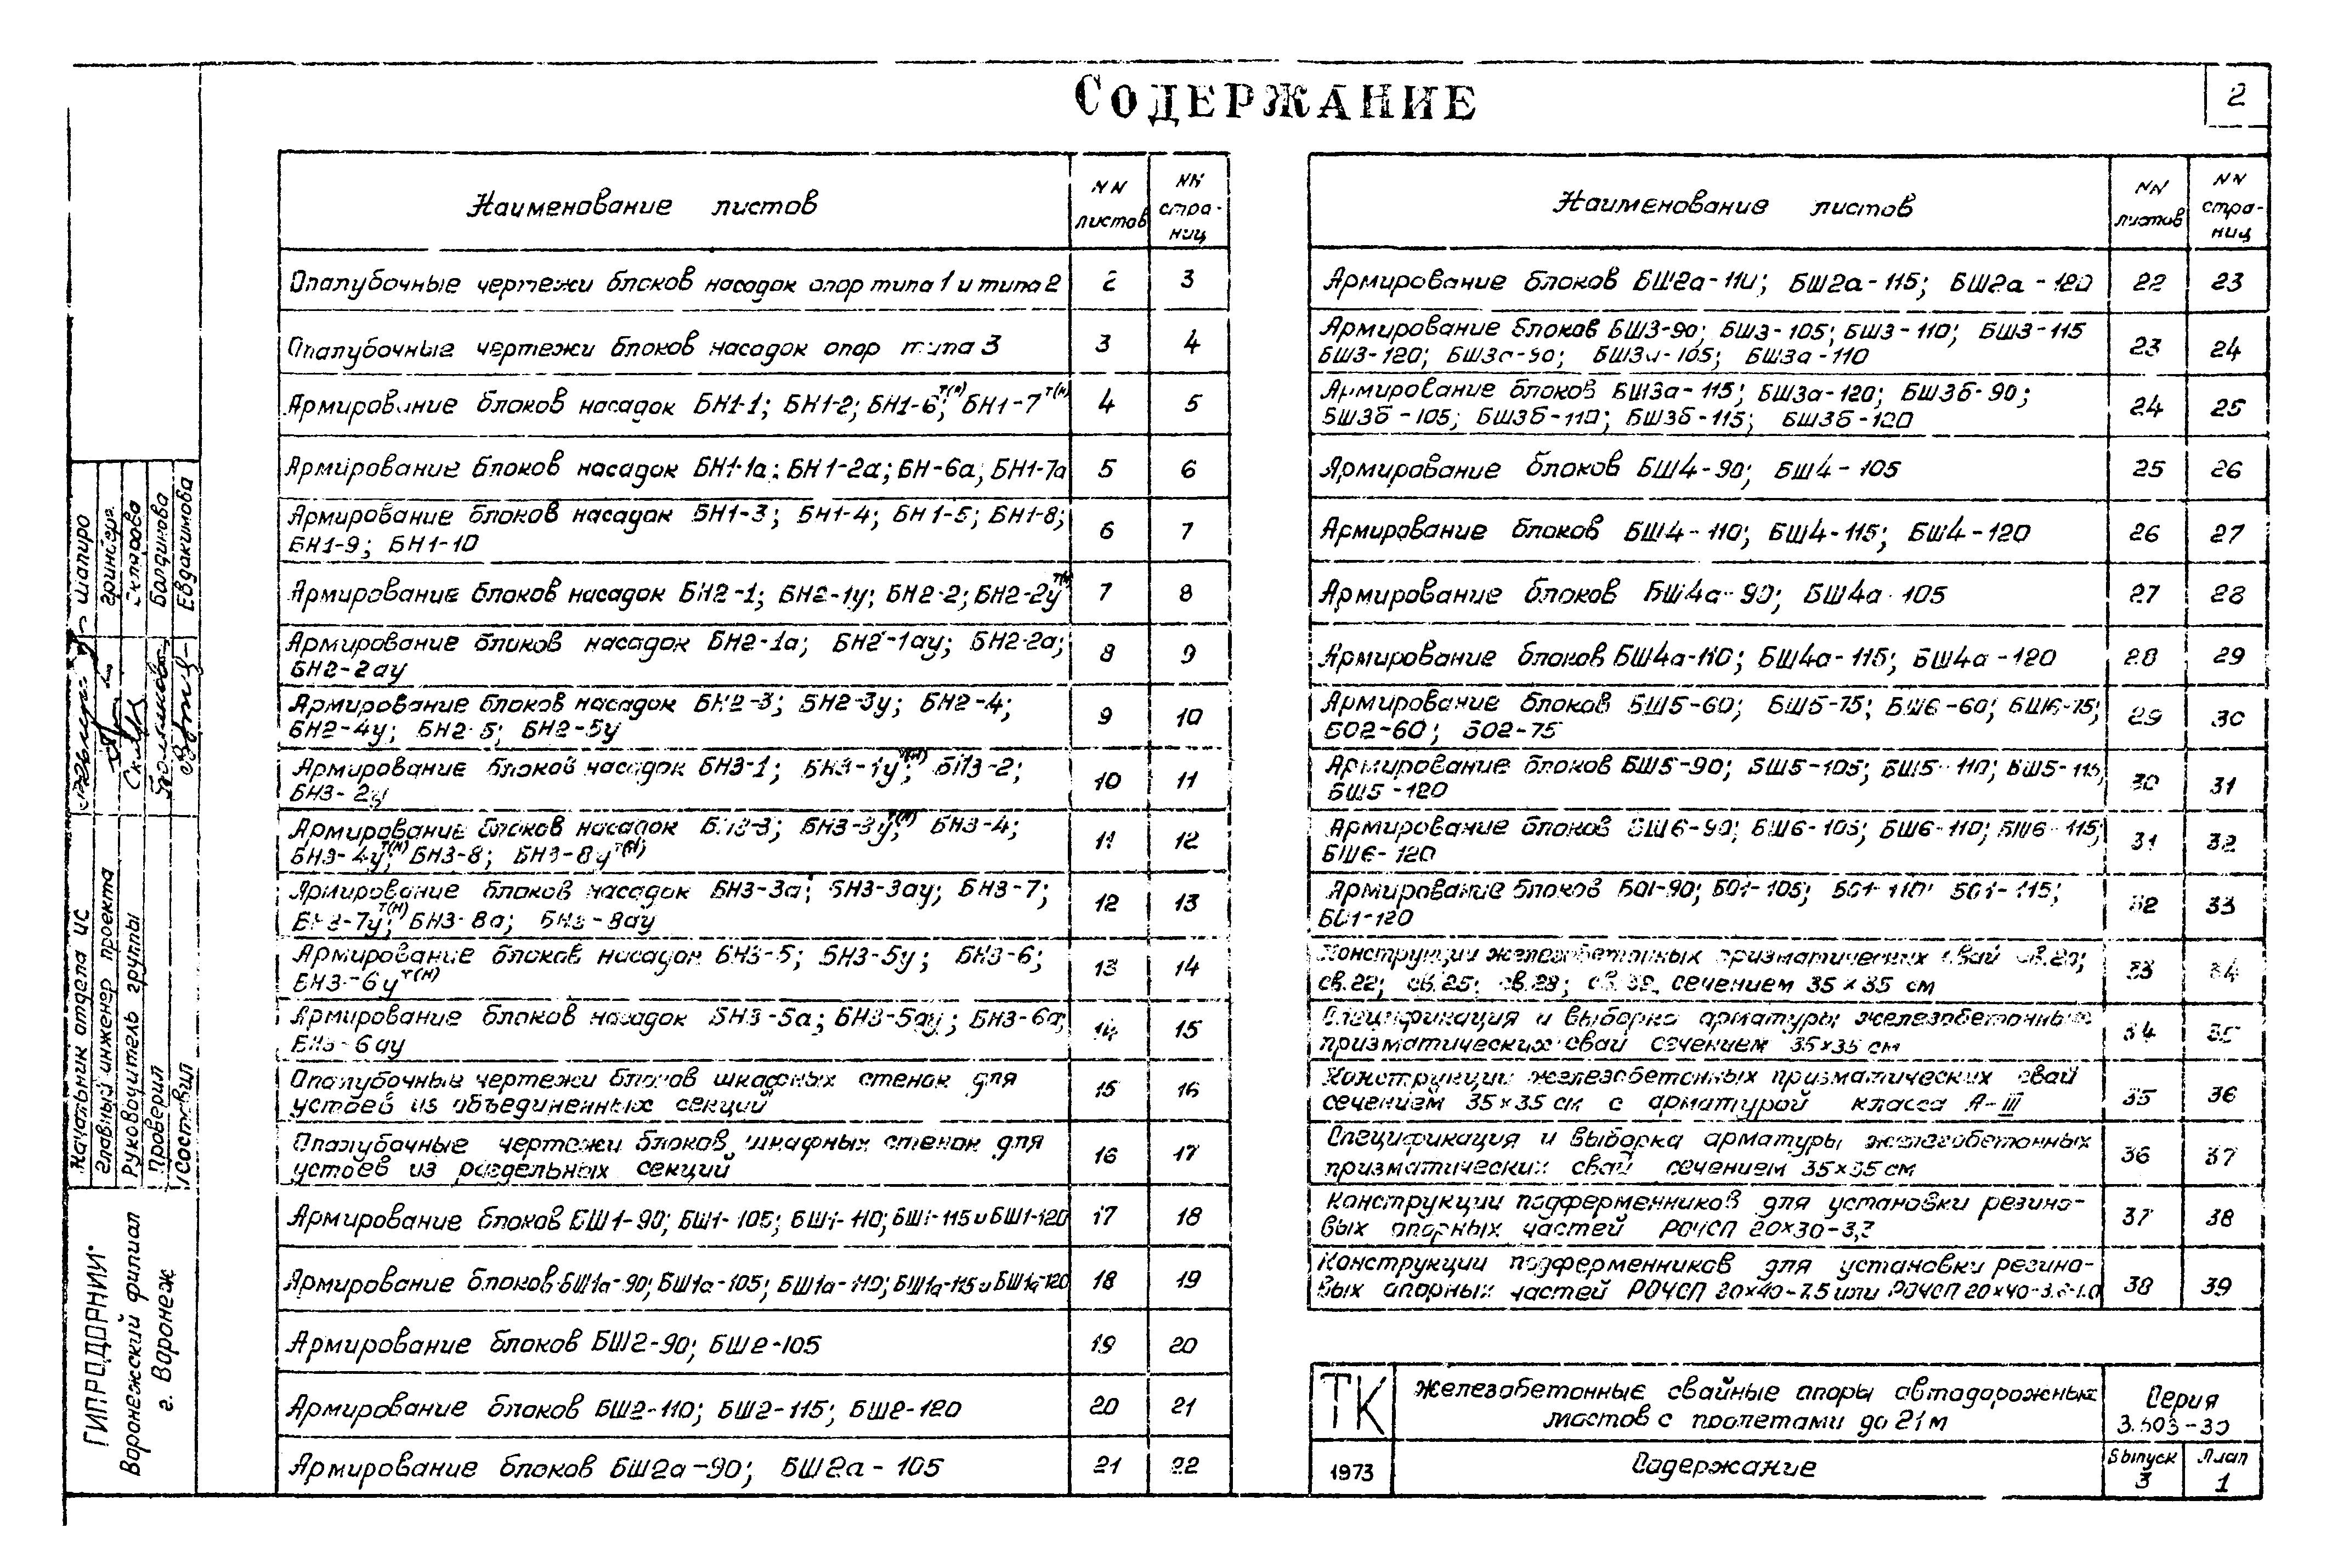 2
СОДЕРЖАНИЕ
Наименование листов
NN листов
NN стра-ниц
Опалубочные чертежи блоков насадок опор типа 1 и типа 2 2 3
Опалубочные чертежи блоков насадок опор типа 3 3 4
Армирование блоков насадок БН1-1; БН1-2; БН1-6т(н); БН1-7т(н) 4 5
Армирование блоков насадок БН1-1а; БН1-2а; БН-6а; БН1-7а 5 6
Армирование блоков насадок БН1-3; БН1-4; БН1-5; БН1-8;
БН1-9; БН1-10 6 7
Армирование блоков насадок БН2-1; БН2-1у; БН2-2; БН2-2ут(н) 7 8
Армирование блоков насадок БН2-1а; БН2-1ау; БН2-2а;
БН2-2ау 8 9
Армирование блоков насадок БН2-3; БН2-3у; БН2-4;
БН2-4у; БН2-5; БН2-5у 9 10
Армирование блоков насадок БН3-1; БН3-1ут(н); БН3-2;
БН3-2у 10 11
Армирование блоков насадок БН3-3; БН3-3ут(н); БН3-4;
БН3-4ут(н); БН3-8; БН3-8ут(н) 11 12
Армирование блоков насадок БН3-3а; БН3-3ау; БН3-7;
БН3-7ут(н); БН3-8а; БН3-8ау 12 13
Армирование блоков насадок БН3-5; БН3-5у; БН3-6;
БН3-6ут(н) 13 14
Армирование блоков насадок БН3-5а; БН3-5ау; БН3-6а;
БН3-6ау 14 15
Опалубочные чертежи блоков шкафных стенок для
устоев из объединенных секций 15 16
Опалубочные чертежи блоков шкафных стенок для
устоев из раздельных секций 16 17
Армирование блоков БШ1-90; БШ1-105; БШ1-110; БШ1-115 и БШ1-120 17 18
Армирование блоков БШ1а-90; БШ1а-105; БШ1а-110; БШ1а-115 и БШ1а-120 18 19
Армирование блоков БШ2-90; БШ2-105 19 20
Армирование блоков БШ2-110; БШ2-115; БШ2-120 20 21
Армирование блоков БШ2а-90; БШ2а-105 21 22
Наименование листов
NN листов
NN стра-ниц
Армирование блоков БШ2а-110; БШ2а-115; БШ2а-120 22 23
Армирование блоков БШ3-90; БШ3-105; БШ3-110; БШ3-115
БШ3-120; БШ3а-90; БШ3а-105; БШ3а-110 23 24
Армирование блоков БШ3а-115; БШ3а-120; БШ3б-90;
БШ3б-105; БШ3б-110; БШ3б-115; БШ3б-120 24 25
Армирование блоков БШ4-90; БШ4-105 25 26
Армирование блоков БШ4-110; БШ4-115; БШ4-120 26 27
Армирование блоков БШ4а-90; БШ4а-105 27 28
Армирование блоков БШ4а-110; БШ4а-115; БШ4а-120 28 29
Армирование блоков БШ5-60; БШ5-75; БШ6-60; БШ6-75;
БО2-60; БО2-75 29 30
Армирование блоков БШ5-90; БШ5-105; БШ5-110; БШ5-115;
БШ5-120 30 31
Армирование блоков БШ6-90; БШ6-105; БШ6-110; БШ6-115;
БШ6-120 31 32
Армирование блоков БО1-90; БО1-105; БО1-110; БО1-115;
БО1-120 32 33
Конструкции железобетонных призматических свай св.20;
св.22; св.25; св.28; св.32, сечением 35×35 см 33 34
Спецификация и выборка арматуры железобетонных
призматических свай сечением 35×35 см 34 35
Конструкции железобетонных призматических свай
сечением 35×35 см с арматурой класса А-III 35 36
Спецификация и выборка арматуры железобетонных
призматических свай сечением 35×35 см 36 37
Конструкции подферменников для установки резино-
вых опорных частей РОЧСП 20×30-3,2 37 38
Конструкции подферменников для установки резино-
вых опорных частей РОЧСП 20×40-7.5 или РОЧСП 20×40-3.2-1.0 38 39
ТК
Железобетонные свайные опоры автодорожных
мостов с пролетами до 21 м
Серия
3.503-30
1973
Содержание
Выпуск
3
Лист
1
Начальник отдела ИС Шапиро
Главный инженер проекта
Руководитель группы Склярова
Проверил Болдинова
Составил Евдакимова
ГИПРОДОРНИИ
Воронежский филиал
г. Воронеж